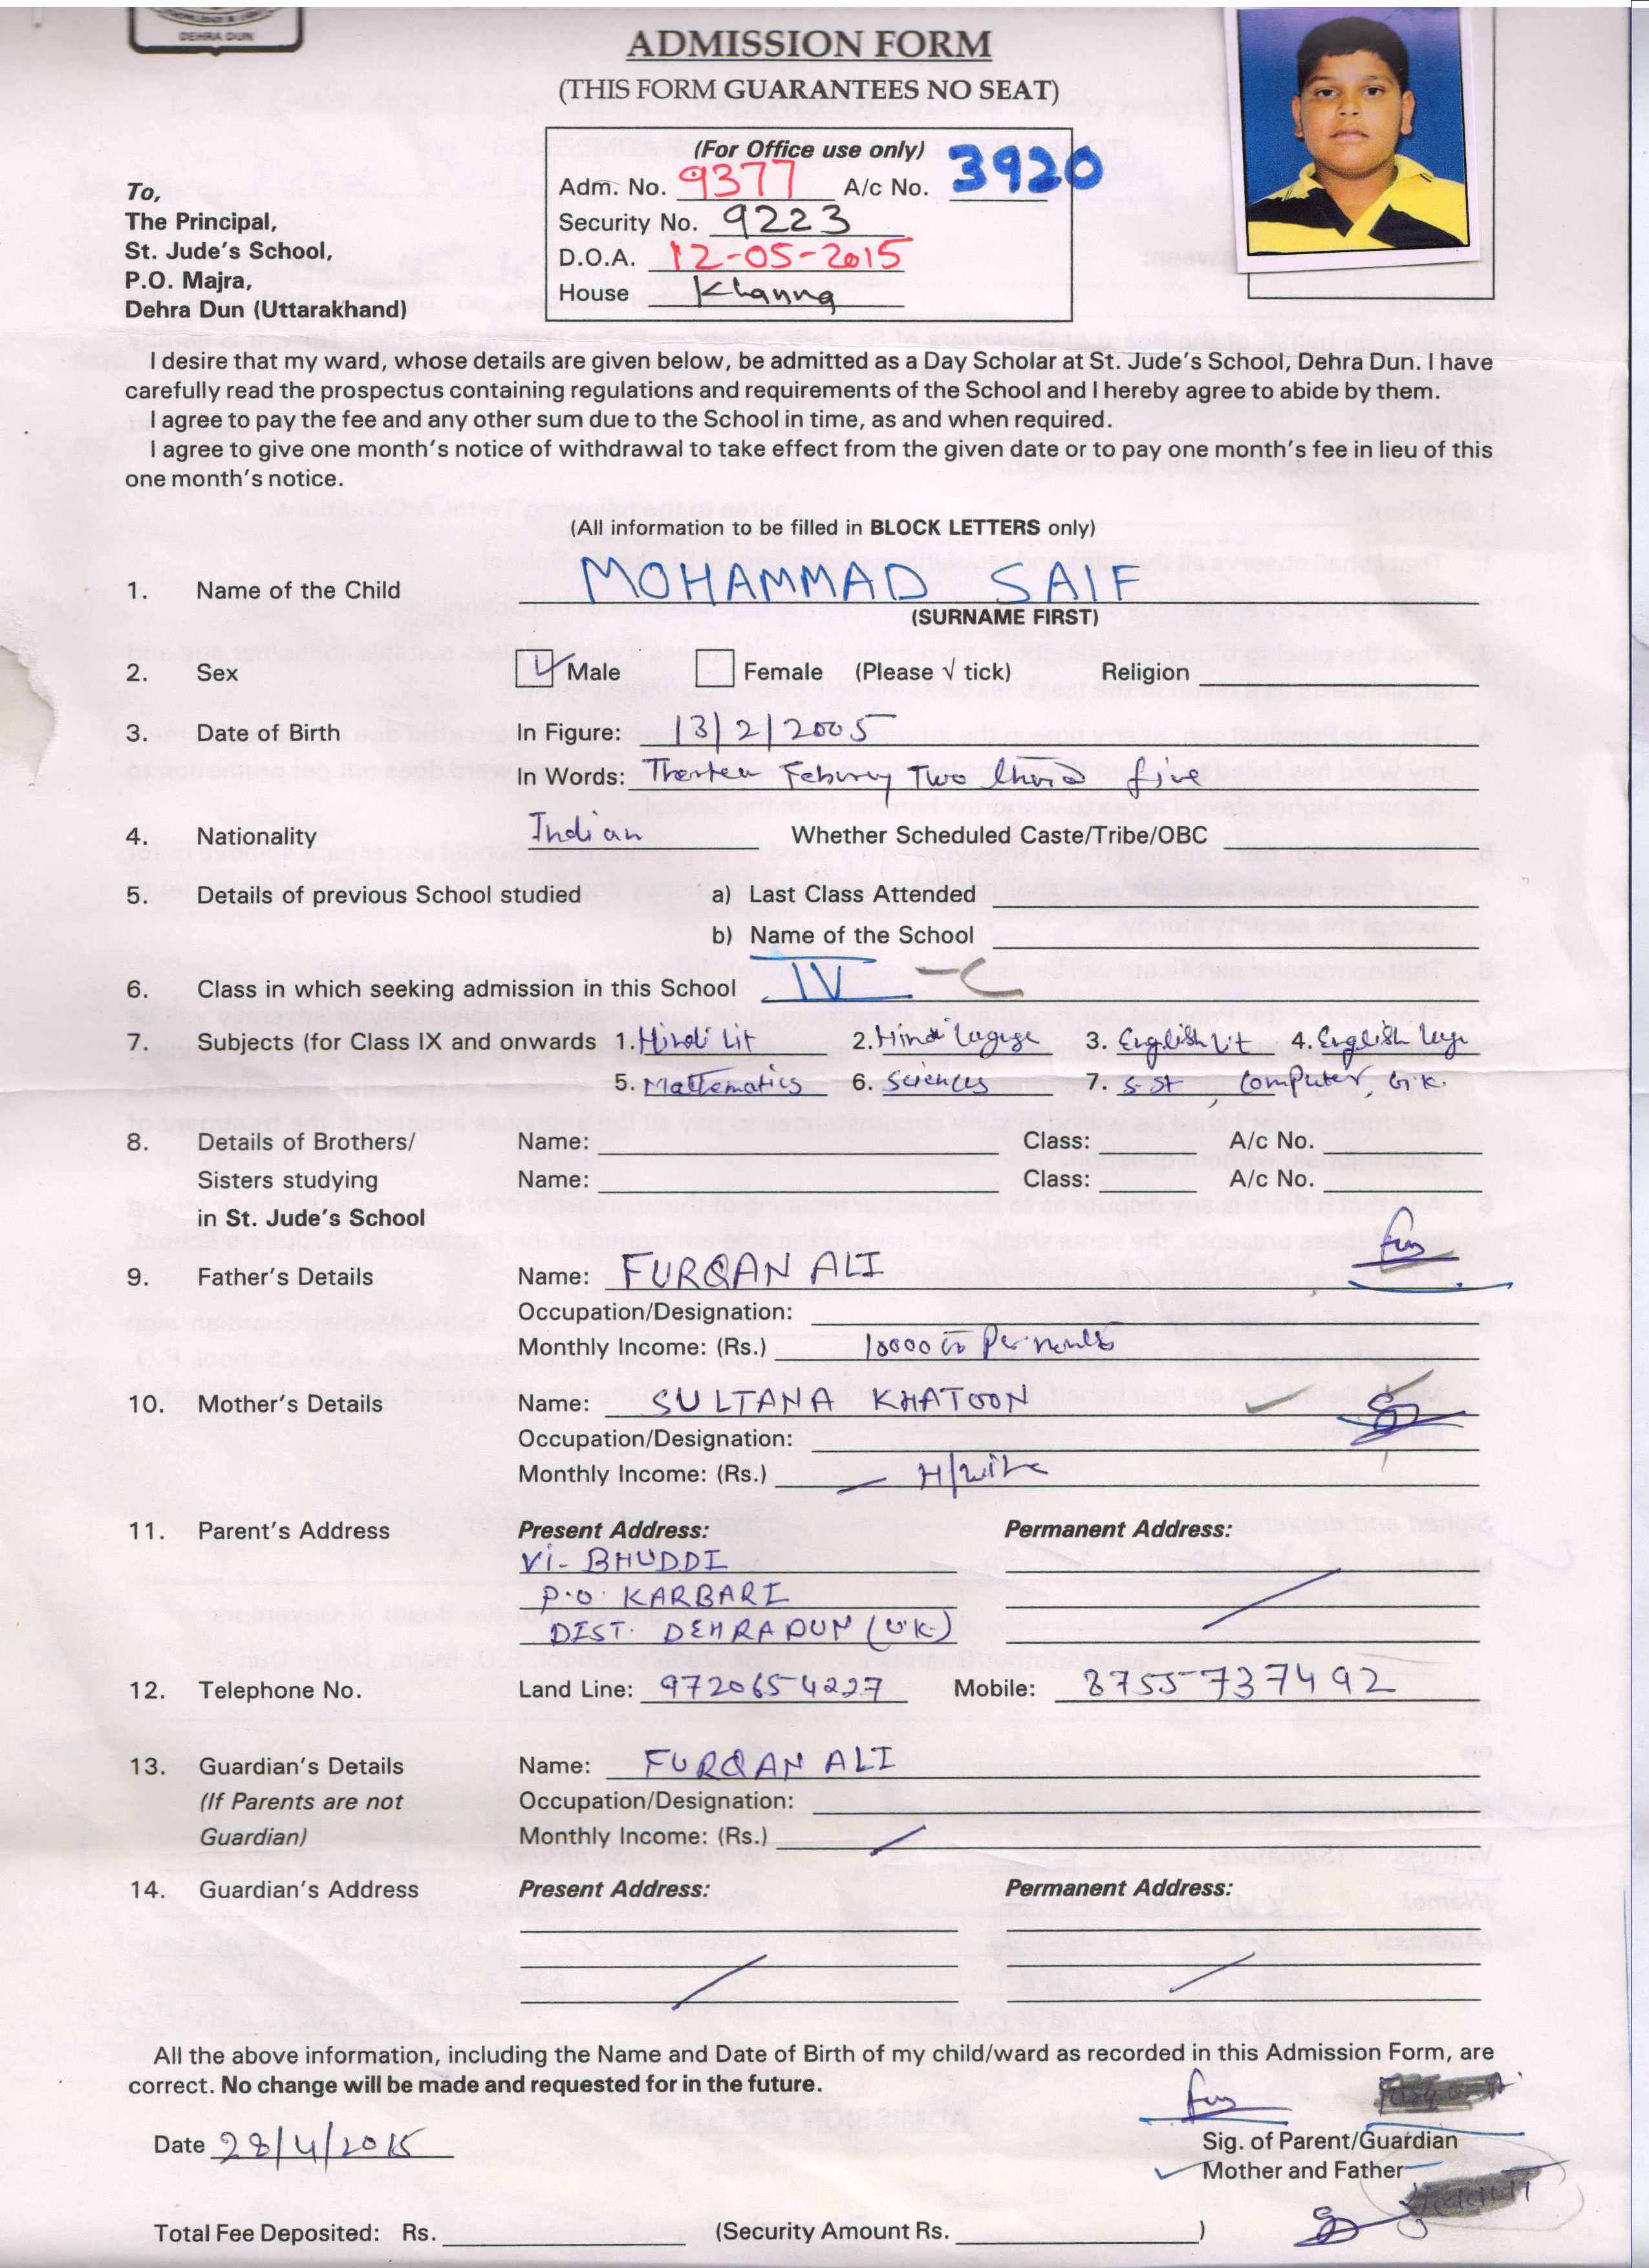 DEHRA DUN
ADMISSION FORM
(THIS FORM GUARANTEES NO SEAT)
(For Office use only)
Adm. No. 9377 A/c No. 3920
Security No. 9223
D.O.A. 12-05-2015
House Khanna
To,
The Principal,
St. Jude's School,
P.O. Majra,
Dehra Dun (Uttarakhand)
I desire that my ward, whose details are given below, be admitted as a Day Scholar at St. Jude's School, Dehra Dun. I have
carefully read the prospectus containing regulations and requirements of the School and I hereby agree to abide by them.
I agree to pay the fee and any other sum due to the School in time, as and when required.
I agree to give one month's notice of withdrawal to take effect from the given date or to pay one month's fee in lieu of this
one month's notice.
(All information to be filled in BLOCK LETTERS only)
1. Name of the Child MOHAMMAD SAIF
(SURNAME FIRST)
2. Sex Male Female (Please √ tick) Religion
3. Date of Birth In Figure: 13/2/2005
In Words: Two five
4. Nationality Indian Whether Scheduled Caste/Tribe/OBC
5. Details of previous School studied a) Last Class Attended
b) Name of the School
6. Class in which seeking admission in this School IV - C
7. Subjects (for Class IX and onwards 1. Hindi Lit 2. Hindi 3. English Lit 4. English
5. Mathematics 6. Sciences 7. S-St, Computer, G.K.
8. Details of Brothers/ Name: Class: A/c No.
Sisters studying Name: Class: A/c No.
in St. Jude's School
9. Father's Details Name: FURQAN ALI
Occupation/Designation:
Monthly Income: (Rs.) 10000 Per
10. Mother's Details Name: SULTANA KHATOON
Occupation/Designation:
Monthly Income: (Rs.) — H/wife
11. Parent's Address Present Address: Permanent Address:
Vi- BHUDDI
P.O. KARBARI
DIST. DEHRADUN (U.K.)
12. Telephone No. Land Line: 9720654227 Mobile: 8755737492
13. Guardian's Details Name: FURQAN ALI
(If Parents are not Occupation/Designation:
Guardian) Monthly Income: (Rs.)
14. Guardian's Address Present Address: Permanent Address:
All the above information, including the Name and Date of Birth of my child/ward as recorded in this Admission Form, are
correct. No change will be made and requested for in the future.
Date 28/4/2015
Sig. of Parent/Guardian
Mother and Father
Total Fee Deposited: Rs. (Security Amount Rs. )